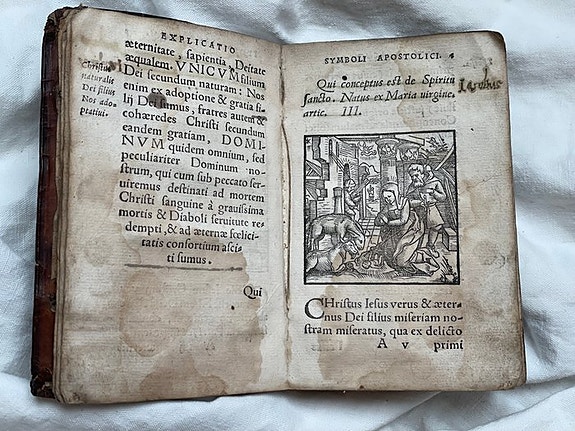 EXPLICATIO
æternitate, sapientia, Deitate
æqualem. VNICVM filium
Dei secundum naturam: Nos
enim ex adoptione & gratia fi-
lij Dei sumus, fratres autem &
cohæredes Christi secundum
eandem gratiam, DOMI-
NVM quidem omnium, sed
peculiariter Dominum no-
strum, qui cum sub peccato ser-
uiremus destinati ad mortem
Christi sanguine à grauissima
mortis & Diaboli seruitute re-
dempti, & ad æternæ fœlici-
tatis consortium asci-
ti sumus.
Christus
naturalis
Dei filius
Nos ado-
ptatiui.
Qui
SYMBOLI APOSTOLICI. 4
Qui conceptus est de Spiritu
sancto. Natus ex Maria virgine.
artic. III.
CHristus Iesus verus & æter-
nus Dei filius miseriam no-
stram miseratus, qua ex delicto
A v primi